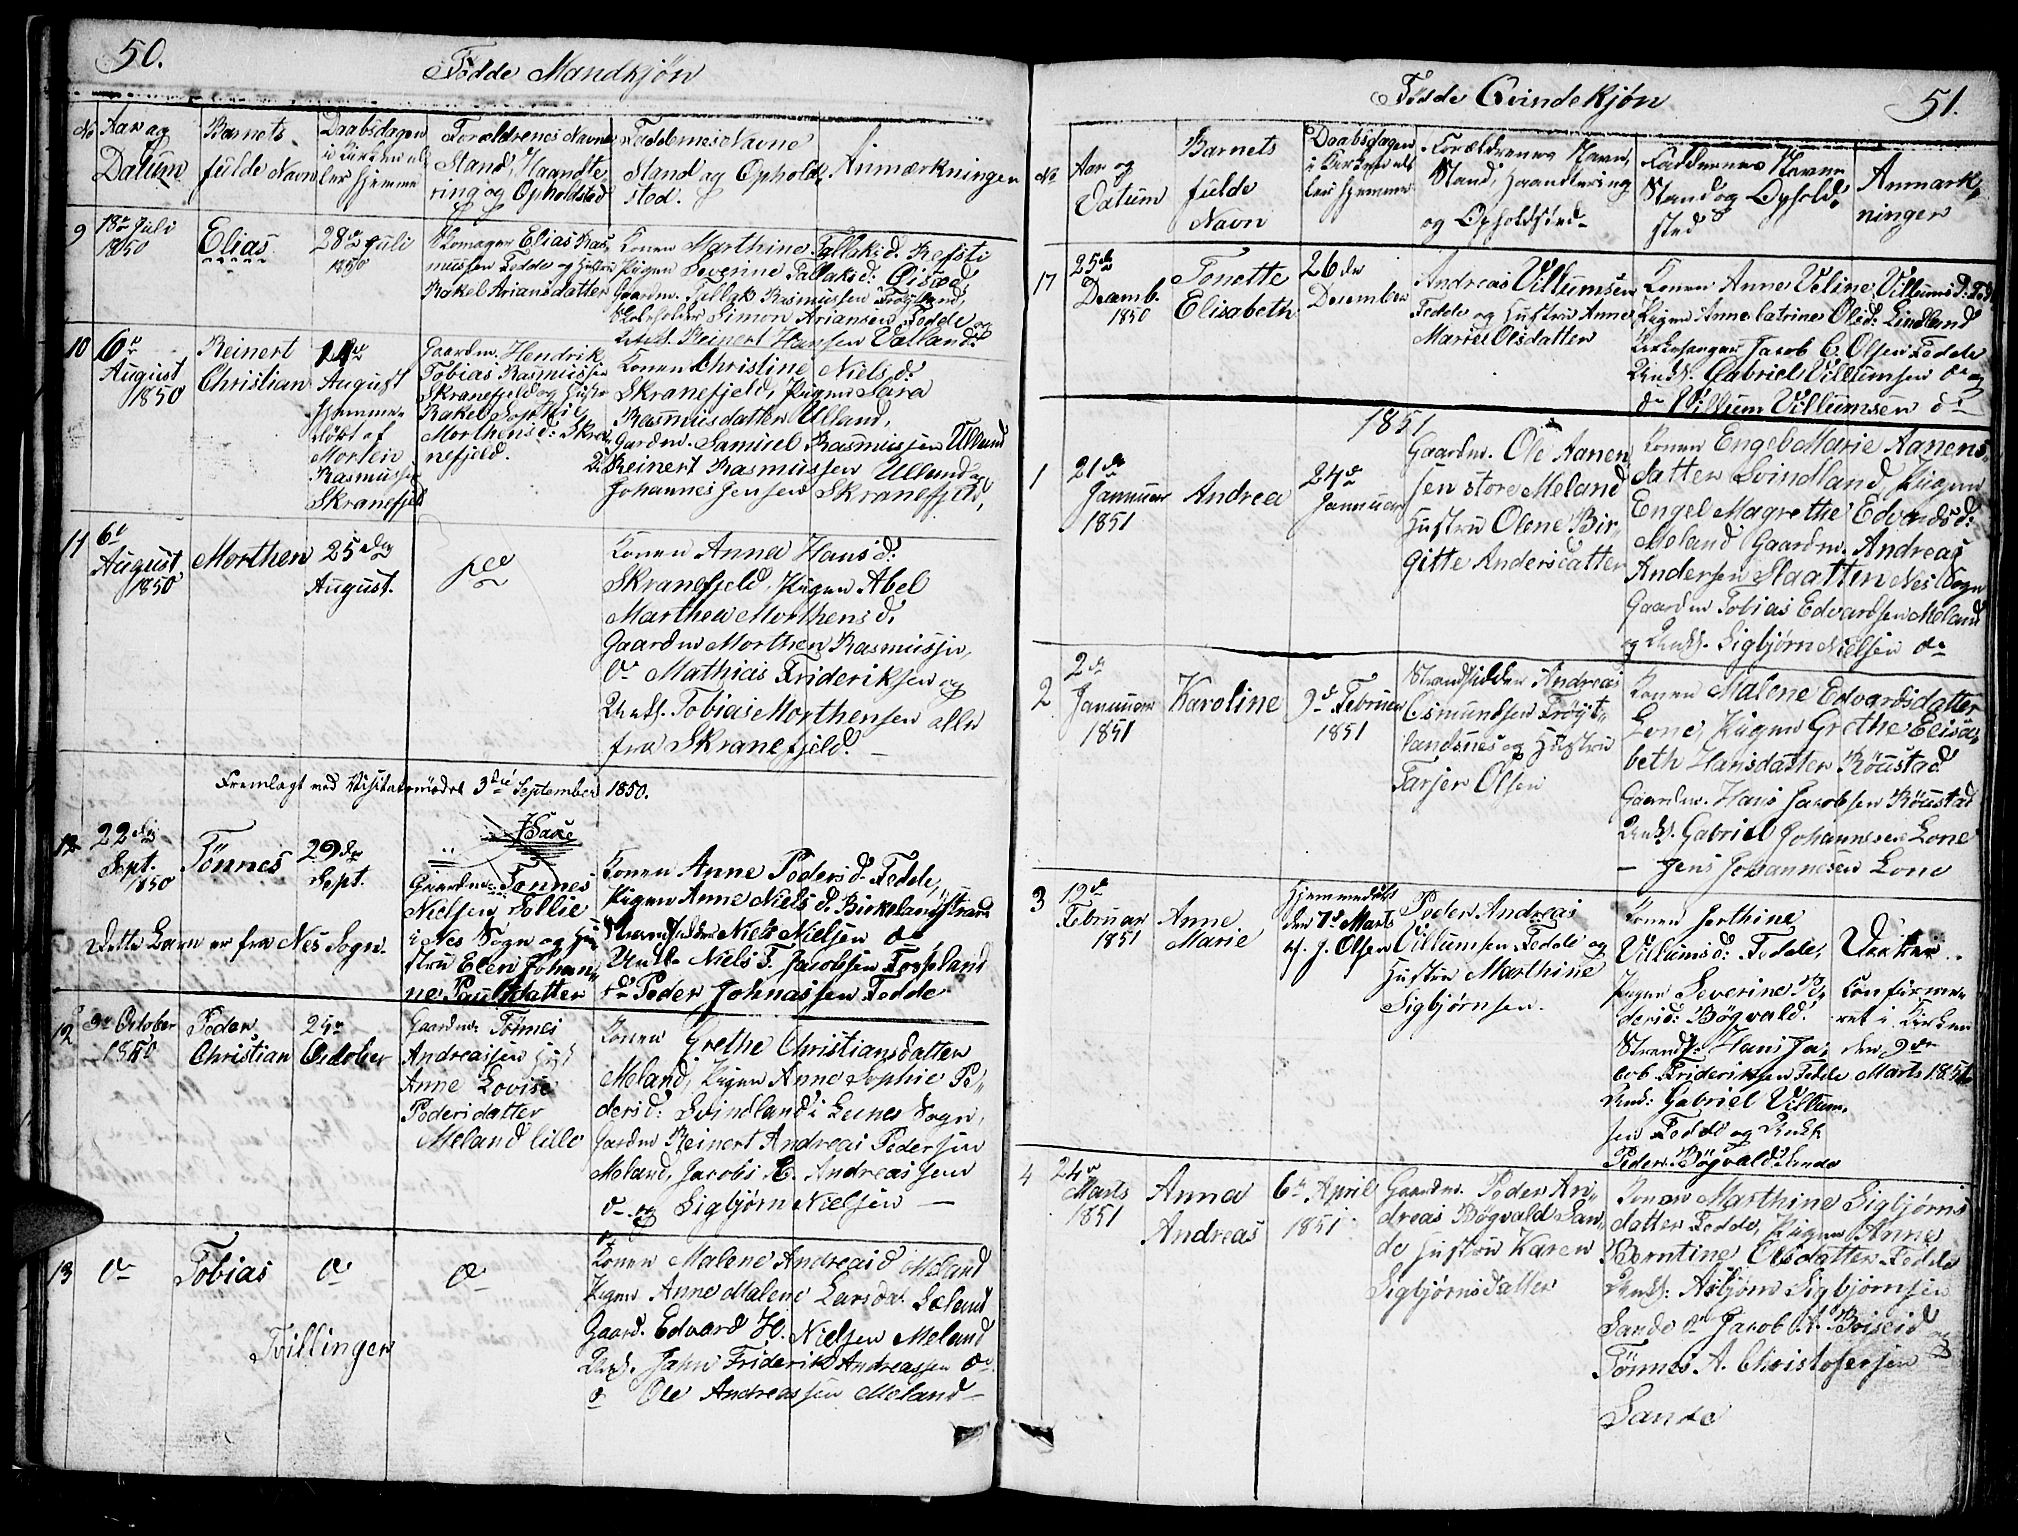 50.
Fødde Mandkjøn
No
Aar og
Datum
Barnets
fulde Navn
Daabsdagen
i Kirken el
ler hjemme
Forældrenes Navne
Stand, Haandte,
ring og Opholdsted
Faddernes Navne
Stand og Ophold,
sted.
Anmærkninger
9
13de Juli
1850
Elias
28de Juli
1850
Skomager Elias Ras,
mussen Fedde og Hustru
Rakel Ariansdatter
Konen Marthine Tallaksd. Refsti
Pigen Severine Tallaksd:
Gaardm. Tallak Rasmussen Frøyland,
Skoleholder Simon Ariansen Fedde og
Reinert Hansen Valland.
10
6te
August
1850
Reinert
Christian
August
Hjemme
døbt af
Morten
Rasmussen
Skranefjeld
Gaardm. Hendrik
Tobias Rasmussen
Skranefjeld og Hustru
Rakel Sophie
Morthensd: Skra,
nefjeld.
Konen Christine Nielsd:
Skranefjeld, Pigen Sara
Rasmusdatter Ulland,
Gardm. Samuel Rasmussen Ulland
Reinert Rasmussen Ulland og
Johannes Jensen Skranefjeld,
11
6te
August
1850
Morthen
25de
August.
Konen Anna Hansd:
Skranefjeld, Pigen Abel
Marthea Morthensd.
Gaardm Morthen Rasmussen,
do Mathias Frideriksen og
Unk. Tobias Morthensen alle
fra Skranefjeld. —
Fremlagt ved Visitatsmødet 3die September 1850.
12
22de
Sept.
1850
Tønnes
29de
Sept.
Gaardm: Tønnes
Nielsen Sollie
i Nes Sogn og Hu,
stru Elen Johan,
ne Paulsdatter
Konen Anne Pedersd. Fedde,
Pigen Anne Nielsd. Birkeland
Strandsidder Niels Nielsen do
Unk. Niels T. Jacobsen
do Peder Johnassen Fedde
Dette Barn er fra Nes Sogn.
12
October
1850
Peder
Christian
October
Gaardm: Tønnes
Andreassen Hust
Anne Lovise
Pedersdatter
Meland lille
Konen Grethe Christiansdatter
Meland, Pigen Anne Sophie Pe,
dersd: Svindland i Sogn,
Gardm Reinert Andreas Pedersen
Meland, Jacobs E. Andreassen
do og Sigbjørn Nielsen —
13
do
Tobias
do
do
Konen Malene Andreasd Meland
Pigen Anne Malene Larsda.
Gaard. Edvard H. Nielsen Meland
Unk. Jahn Friderik Andreassen do.
do Ole Andreassen Meland —
Tvillinger
Fødde Qvindekjøn
51.
No
Aar og
Datum
Barnets
fulde
Navn
Daabsdagen
i Kirken el
ler hjemme
Forældrenes Navn,
Stand, Haandtering
og Opholdsted
Faddernes Navne
Stand og Ophold,
sted
Anmærk,
ninger
17
25de
Decemb.
1850
Tonette
Elisabeth
26de
December
Andreas Villumsen
Fedde og Hustru Anne
Marie Olsdatter
Konen Anne Veline Villumsd: Fed
Pigen Anne Catrine Olsd: Lindland
Kirkesanger Jacob C. Olsen Fedde
Unk. Gabriel Villumsen do og
do Villum Villumsen do
1851
1
21de
Januuar
1851
Andrea
24de
Januuar
Gaardm. Ole Aanen,
sen store Meland
Hustru Olene Bir,
gitte Andersdatter
Konen Engel Marie Aanens,
datter Svindland, Pigen
Engel Magrethe Edvardsd:
Meland Gaardm. Andreas
Andersen Staatten Nes Sogn
Gaardm Tobias Edvardsen Meland
og Unk. Sigbjørn Nielsen do
2
2de
Januuar
1851
Karoline
9de Februar
1851
Strandsidder Andreas
Osmundsen Frøyt,
landsnes og Hustru
Tarjer Olsen
Konen Malene Edvardsdatter
Lone, Pigen Grethe Elisa,
beth Hansdatter Røustad
Gaardm. Hans Jacobsen Røustad
Unk. Gabriel Johannesen Lone
— Jens Johannesen Lone
3
Februar
1851
Anne
Marie
Hjemmedøbt
den 1ste Marts
af J. Olsen
Peder Andreas
Villumsen Fedde og
Hustru Marthine
Sigbjørnsen.
Konen Jerthine
Villumsd: Fedde,
Pigen Severine Pe,
dersd: Bøgvald.
Strands. Hans Ja,
cob Frideriksen Fedde
Unk: Gabriel Villum,
sen Fedde og Unk
Peder Bøgvald Sande
Confirme,
ret i Kirken
den 9de
Marts 1851
4
24de
Marts
1851
Anna
Andreas
6te April
1851
Gaardm. Peder An,
dreas Bøgvald San,
de Hustru Karen
Sigbjørnsdatter
Konen Marthine Sigbjørns
datter Fedde, Pigen Anne
Berntine Olsdatter Fedde
Unk: Asbjørn Sigbjørnsen
Sande og Jacob A. Briseid og
Tønnes A. Christofersen
Sande